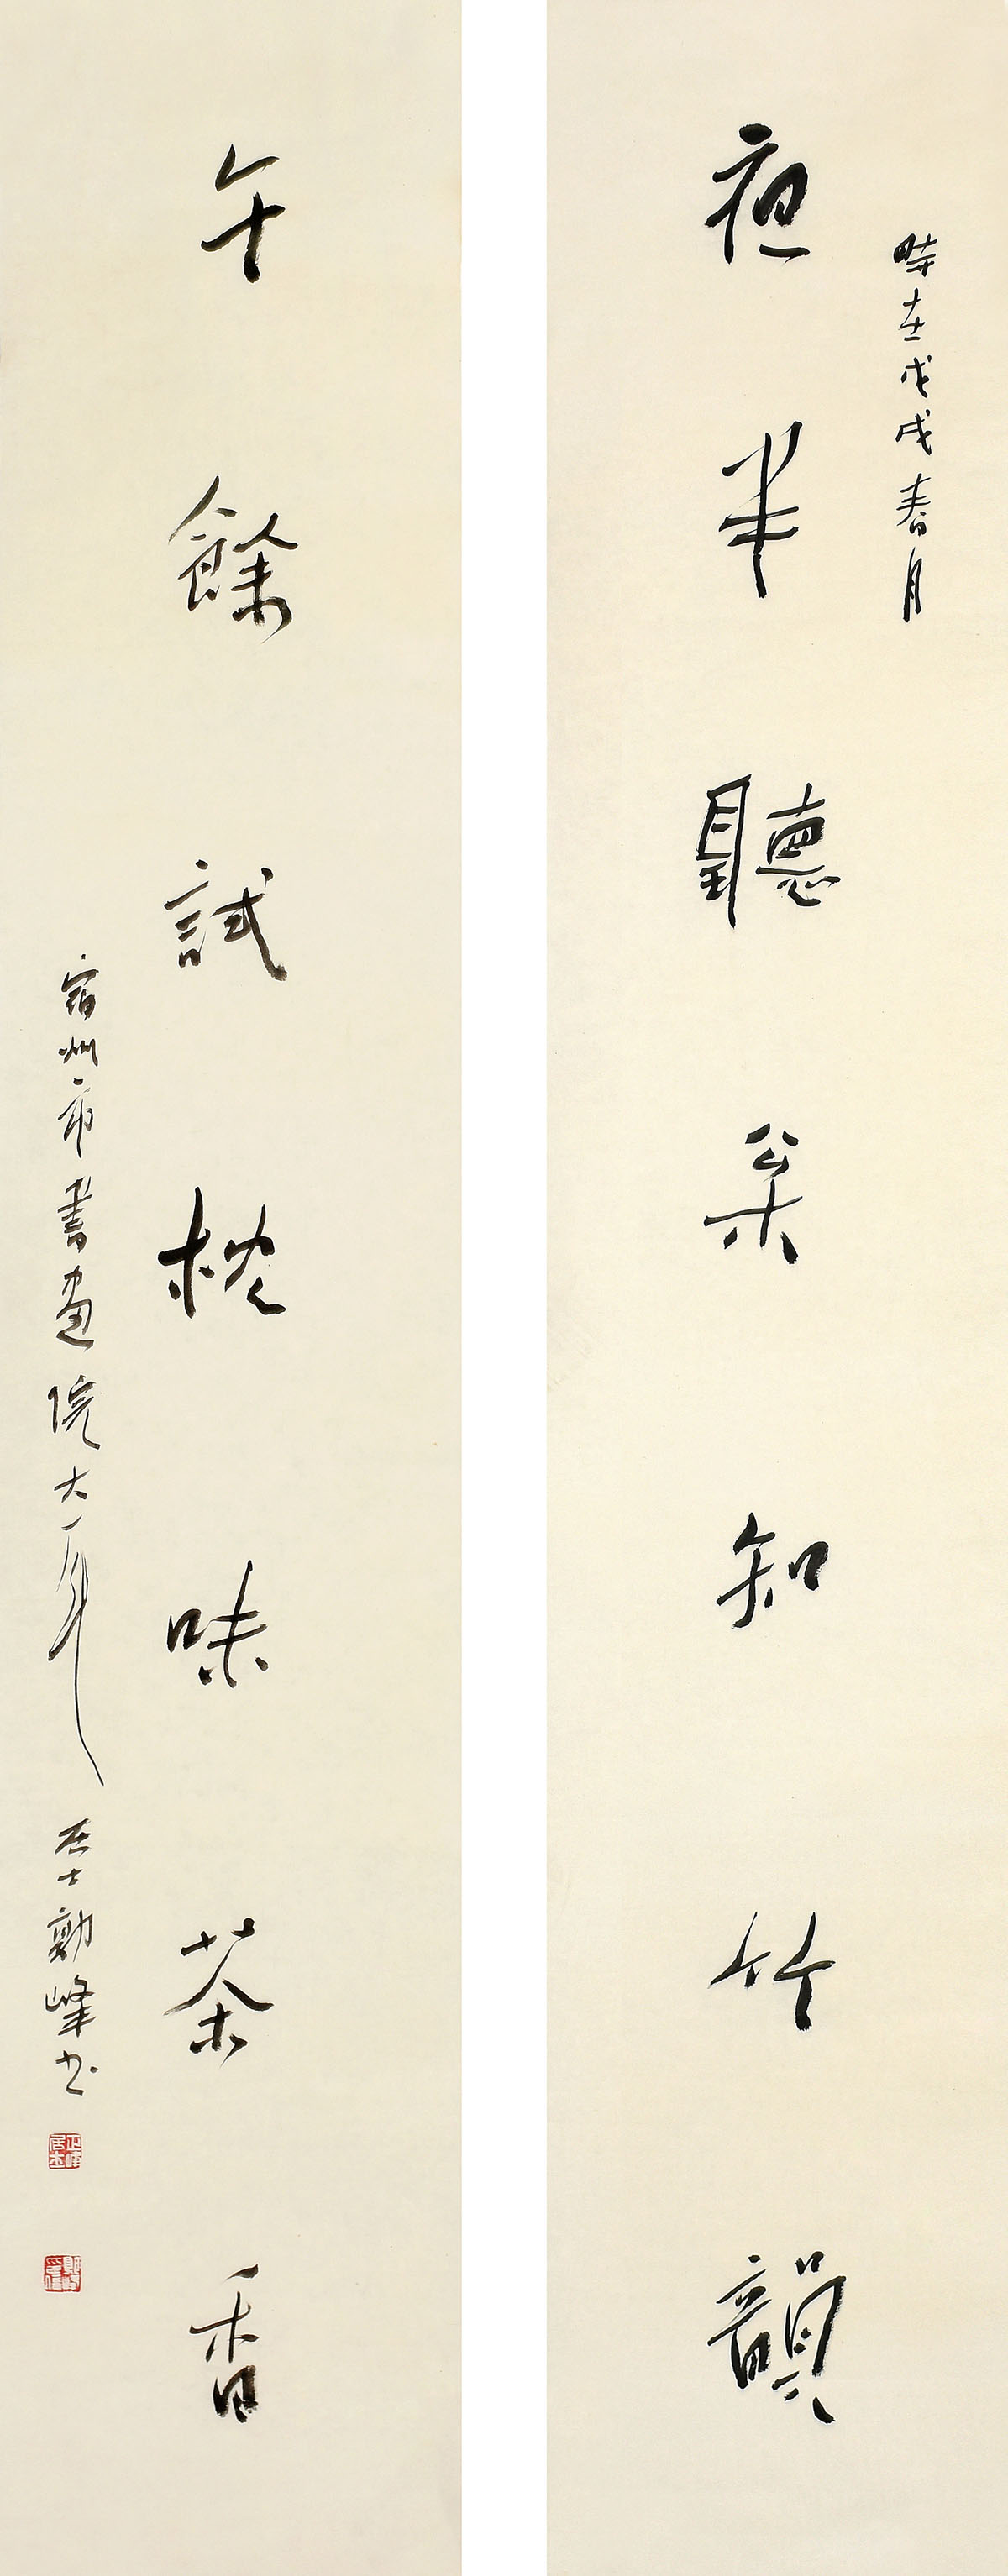 時在戊戌春月
夜半聽枀知竹韻
午餘試枕味茶香
宿州市書畫院大 居士 峰书